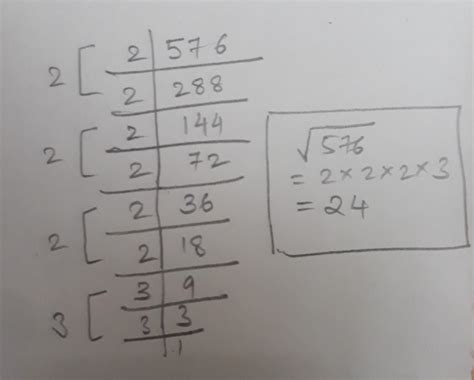 2 [ 2 | 576
2 | 288
2 [ 2 | 144
2 | 72
2 [ 2 | 36
2 | 18
3 [ 3 | 9
3 | 3
1
√576
= 2 × 2 × 2 × 3
= 24